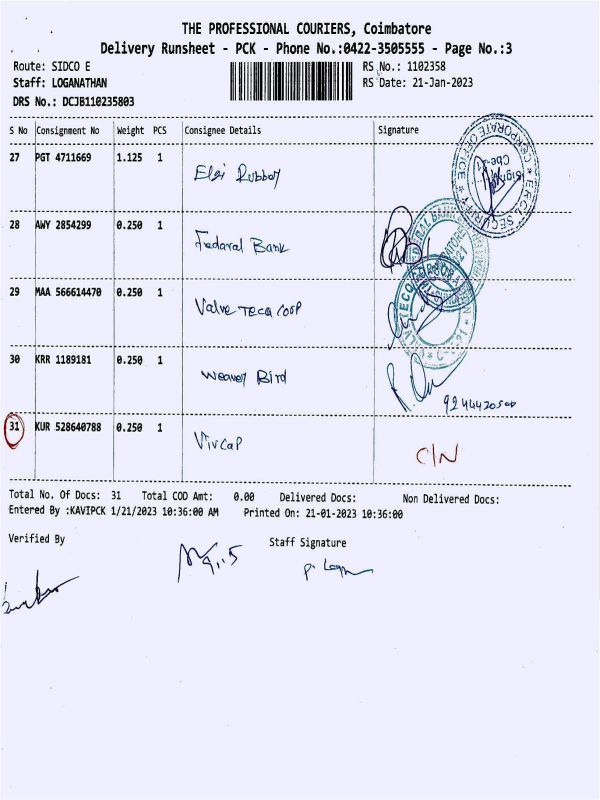 THE PROFESSIONAL COURIERS, Coimbatore
Delivery Runsheet - PCK - Phone No.:0422-3505555 - Page No.:3
Route: SIDCO E RS No.: 1102358
Staff: LOGANATHAN RS Date: 21-Jan-2023
DRS No.: DCJB110235803
S No Consignment No Weight PCS Consignee Details Signature
27 PGT 4711669 1.125 1 Elgi Rubber
CORPORATE OFFICE
SECURITY
28 AWY 2854299 0.250 1 Fedaral Bank
29 MAA 566614470 0.250 1 Valve Teca Corp
30 KRR 1189181 0.250 1 Weaver Bird
31 KUR 528640788 0.250 1 Vivcap C/N
Total No. Of Docs: 31 Total COD Amt: 0.00 Delivered Docs: Non Delivered Docs:
Entered By :KAVIPCK 1/21/2023 10:36:00 AM Printed On: 21-01-2023 10:36:00
Verified By Staff Signature